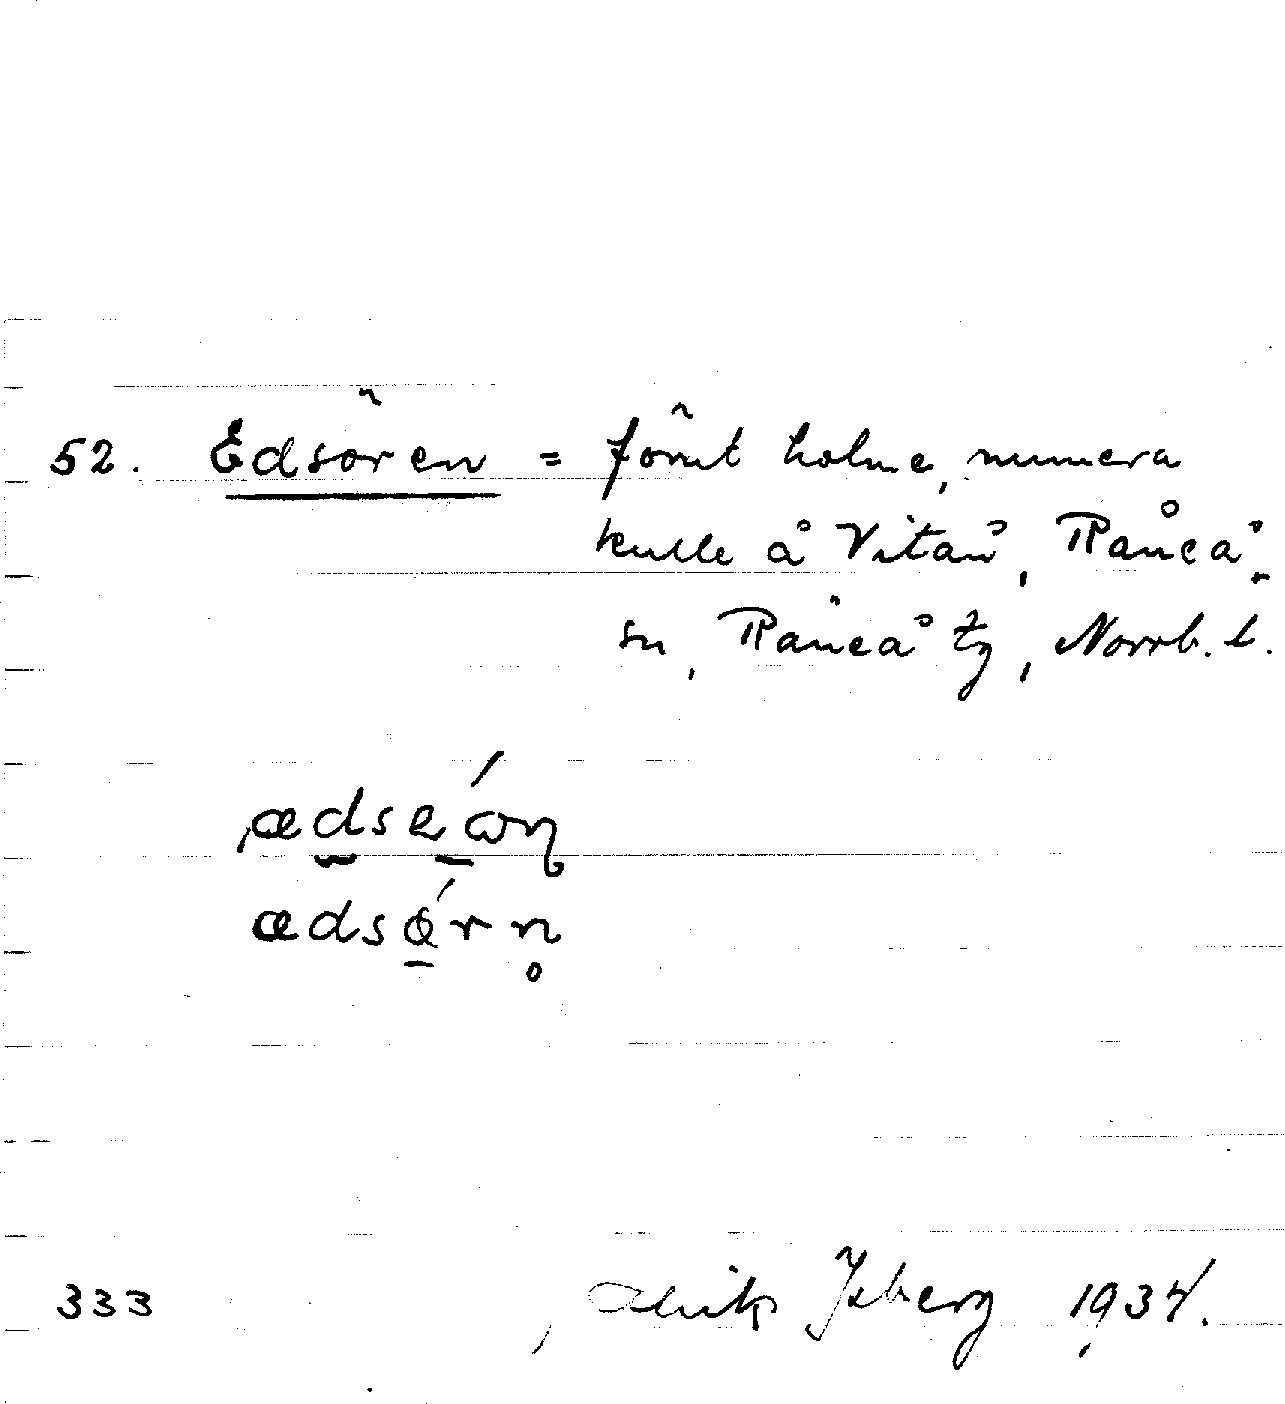 52. Edsören = förut holme, numera
kulle å Vitån, Råneå
sn, Råneå tg, Norrb. l.
ædsörn
333 Isberg 1934.